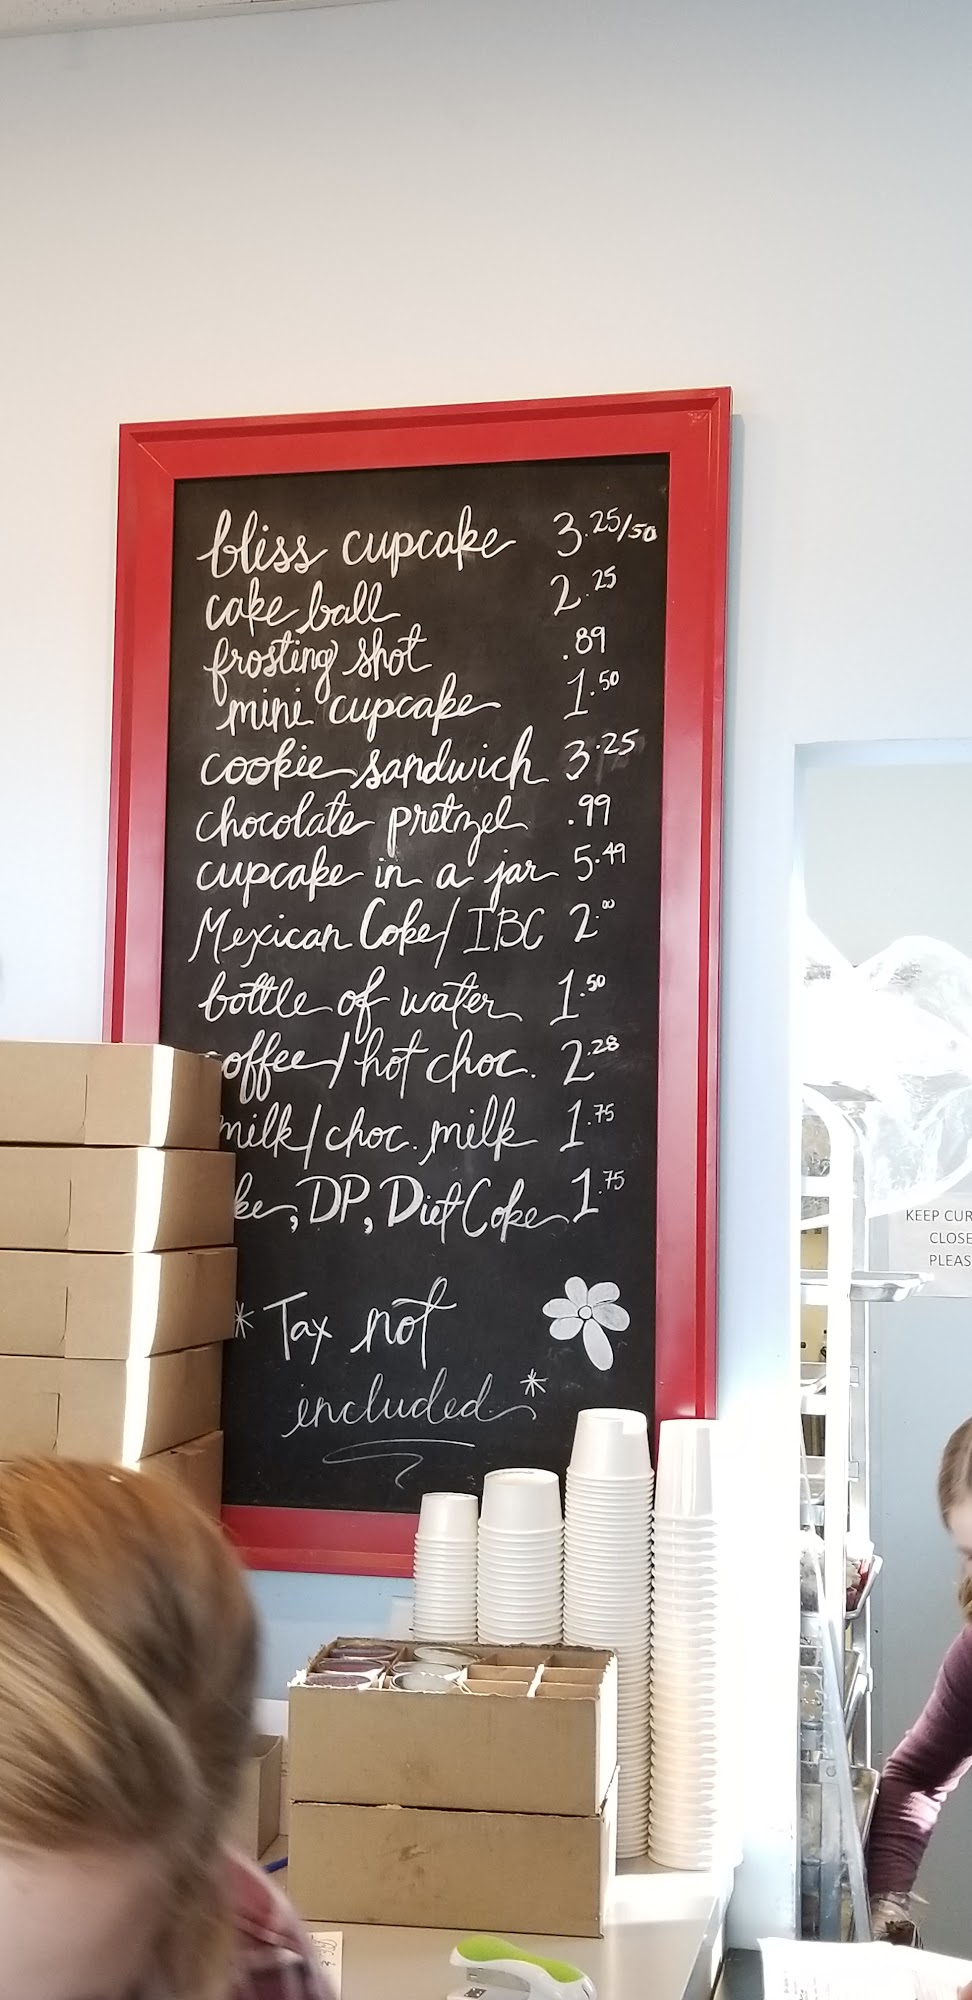 bliss cupcake 3.25/50
cake ball 2.25
frosting shot .89
mini cupcake 1.50
cookie sandwich 3.25
chocolate pretzel .99
cupcake in a jar 5.49
Mexican Coke/ IBC 2.00
bottle of water 1.50
offee/hot choc. 2.28
milk/choc. milk 1.75
ke, DP, Diet Coke 1.75
* Tax not
included *
KEEP CUR
CLOSE
PLEAS